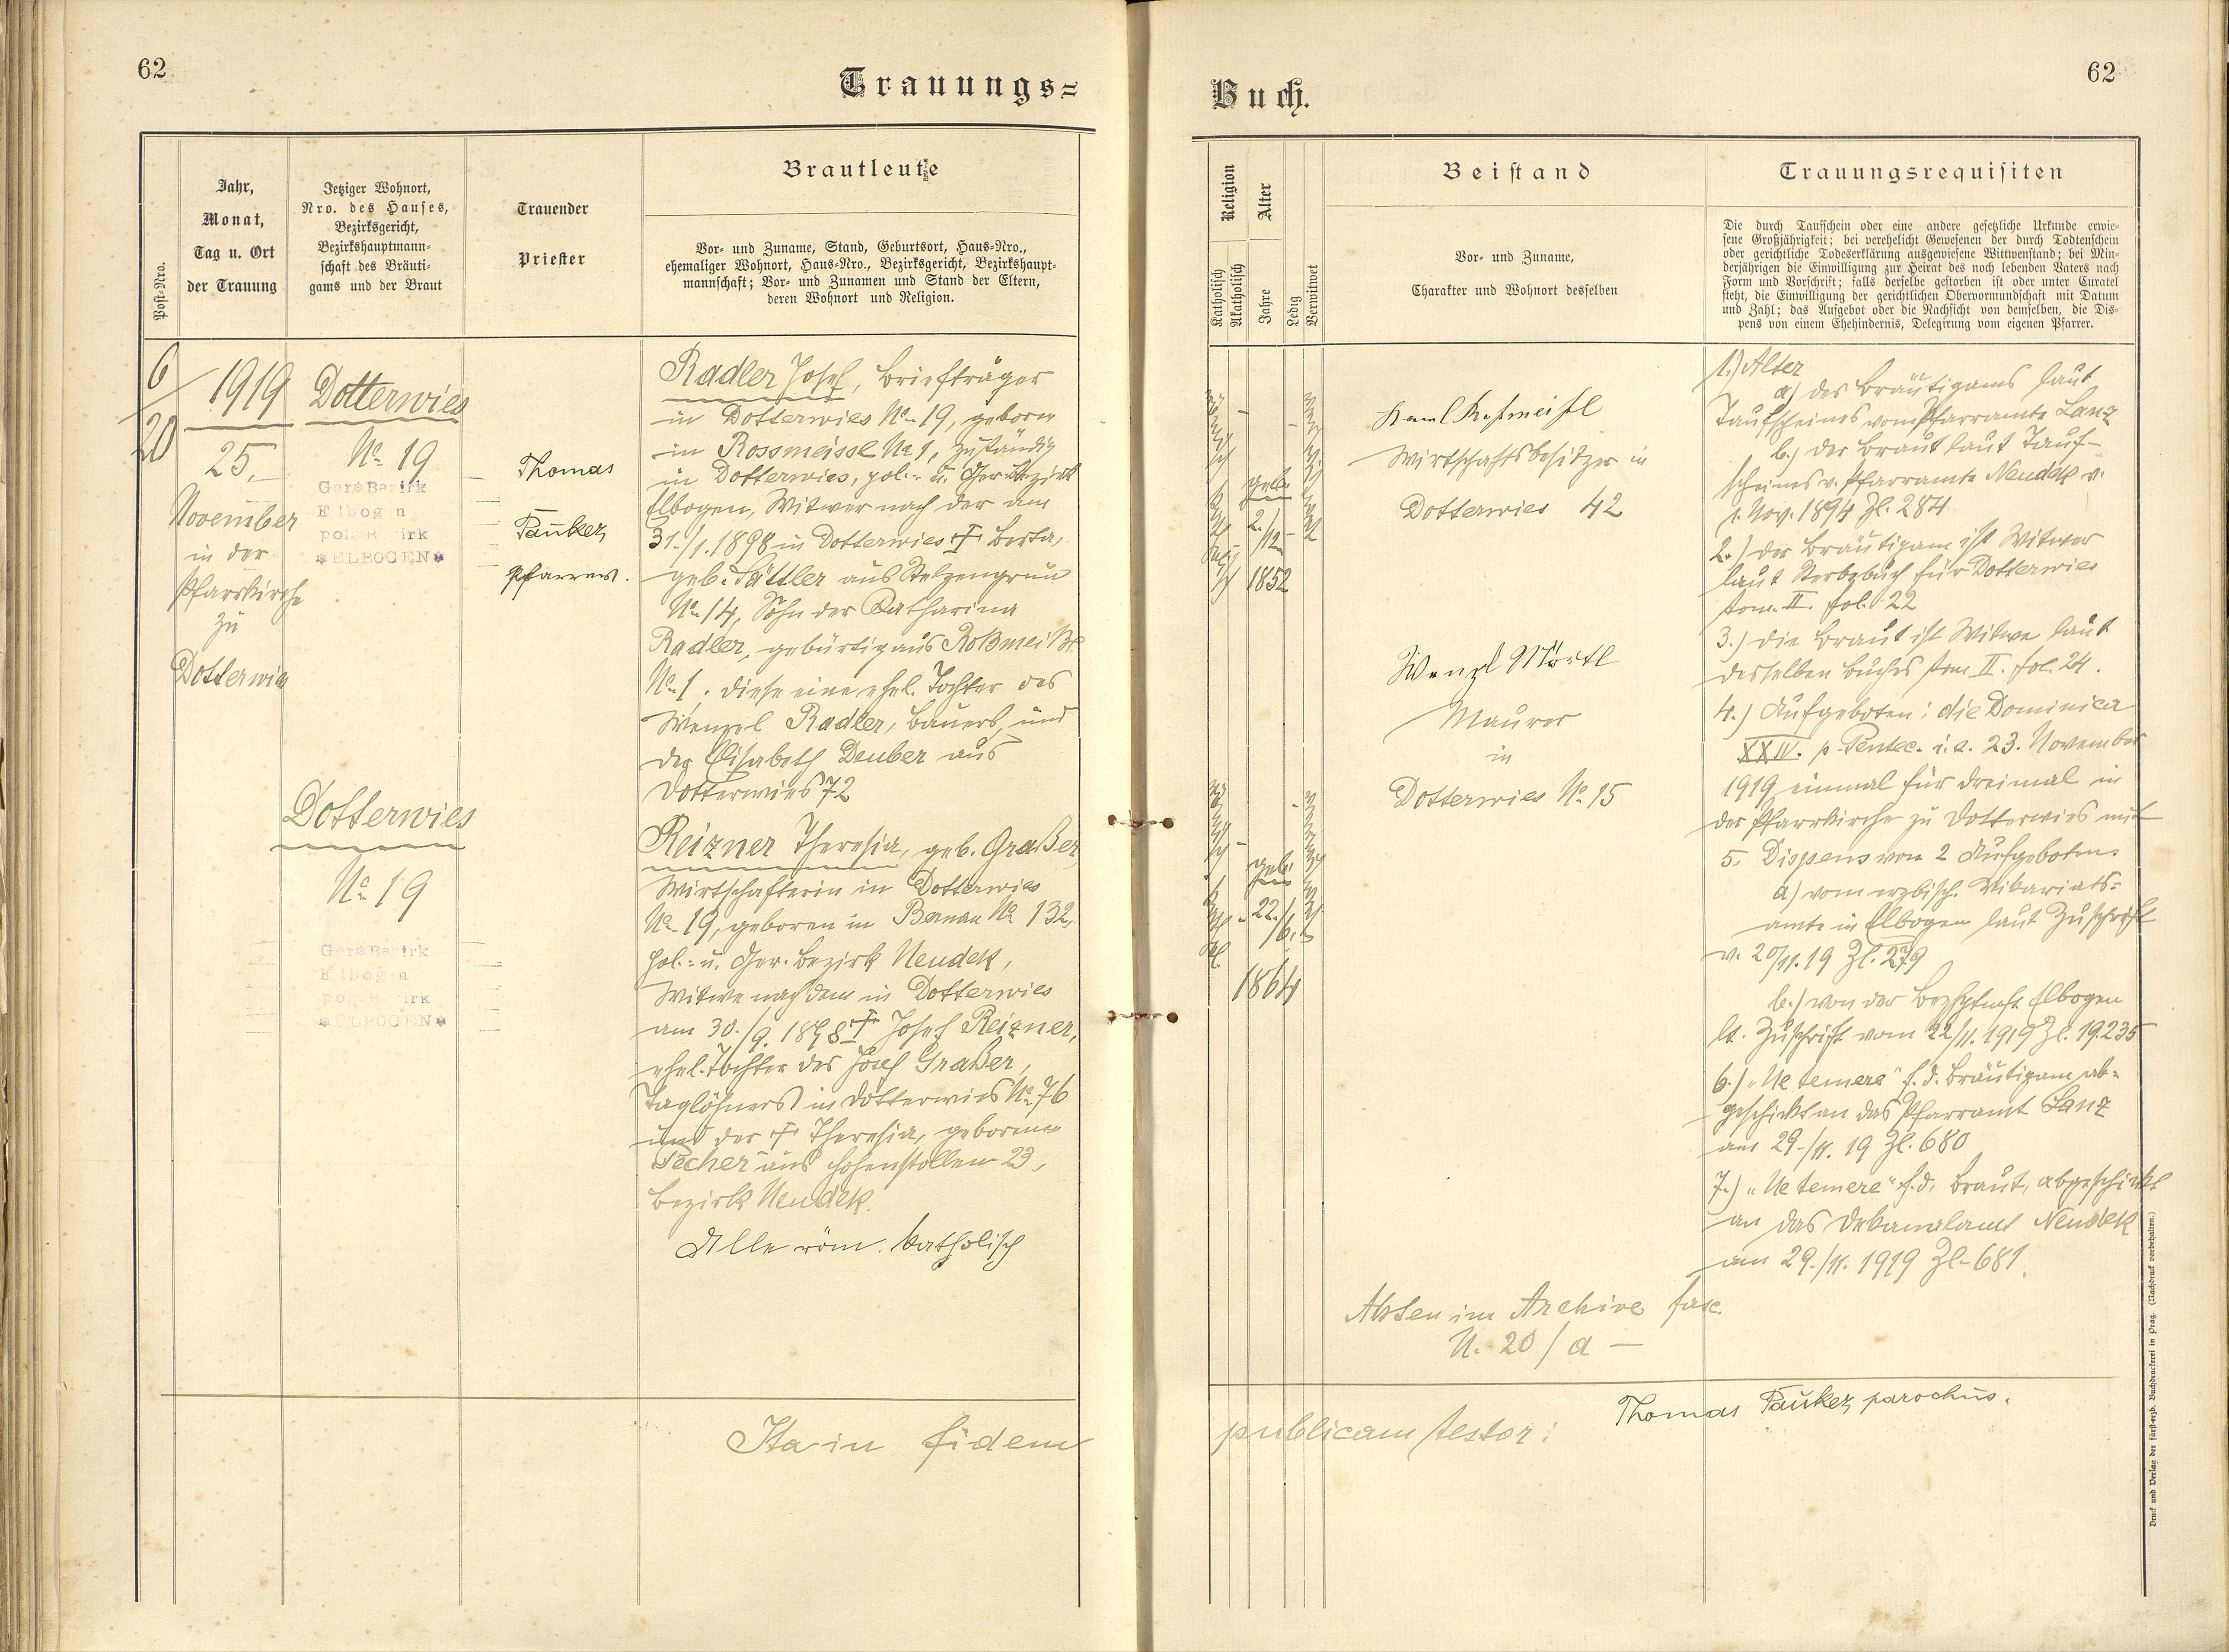 62
Trauungs=
Post-Nro.
Jahr,
Monat,
Tag u. Ort
der Trauung
Jetziger Wohnort,
Nro. des Hauses,
Bezirksgericht,
Bezirkshauptmann-
schaft des Bräuti-
gams und der Braut
Trauender
Priester
Brautleute
Vor- und Zuname, Stand, Geburtsort, Haus-Nro.,
ehemaliger Wohnort, Haus-Nro., Bezirksgericht, Bezirkshaupt-
mannschaft; Vor- und Zunamen und Stand der Eltern,
deren Wohnort und Religion.
6/20
1919
25.
November
in der
Pfarrkirche
zu
Dotterwies
Dotterwies
No 19
Ger. Bezirk
Elbogen
pol. Bezirk
*ELBOGEN*
Thomas
Pauker,
Pfarrer.
Radler Josef, Briefträger
in Dotterwies No 19, geboren
in Rossmeissl No 1, zuständig
in Dotterwies, pol.- u. Ger. Bezirk
Elbogen, Witwer nach der am
31./1. 1898 in Dotterwies † Berta,
geb. Sättler aus Stelzengrün
No 14, Sohn der Katharina
Radler, gebürtig aus Roßmeißl
No 1. diese eine ehel. Tochter des
Wenzel Radler, Bauers und
der Elisabeth Deuber aus
Dotterwies 72
Dotterwies
No 19
Ger. Bezirk
Elbogen
pol. Bezirk
*ELBOGEN*
Reizner Theresia, geb. Graßer,
Wirtschafterin in Dotterwies
No 19, geboren in Bernau No 132,
pol.- u. Ger. Bezirk Neudek,
Witwe nach dem in Dotterwies
am 30./9. 1898 † Josef Reizner,
ehel. Tochter des Josef Graßer,
Taglöhners in Dotterwies No 76
und der † Theresia, geborene
Pecher aus Hohenstollen 23,
Bezirk Neudek.
Alle röm. katholisch
Ita in fidem
62
Buch.
Religion
Katholisch
Akatholisch
Alter
Jahre
Ledig
Verwitwet
Beistand
Vor- und Zuname,
Charakter und Wohnort desselben
Trauungsrequisiten
Die durch Taufschein oder eine andere gesetzliche Urkunde erwie-
sene Großjährigkeit; bei verehelicht Gewesenen der durch Todtenschein
oder gerichtliche Todeserklärung ausgewiesene Wittwenstand; bei Min-
derjährigen die Einwilligung zur Heirat des noch lebenden Vaters nach
Form und Vorschrift; falls derselbe gestorben ist oder unter Curatel
steht, die Einwilligung der gerichtlichen Obervormundschaft mit Datum
und Zahl; das Aufgebot oder die Nachsicht von demselben, die Dis-
pens von einem Ehehindernis, Delegirung vom eigenen Pfarrer.
2./12.
1852
22./6.
1864
Wirtschaftsbesitzer in
Dotterwies 42
Wenzl Mörtl
Maurer
in
Dotterwies No 15
1.) Alter
a) des Bräutigams laut
Taufscheines vom Pfarramte Lanz
b.) der Braut laut Tauf-
scheines v. Pfarramte Neudek v.
1. Nov. 1894 Zl. 284
2.) der Bräutigam ist Witwer
laut Sterbebuch für Dotterwies
tom. II. fol. 22
3.) die Braut ist Witwe laut
desselben Buches tom II. fol. 24.
4.) Aufgeboten: die Dominica
XXIV. p. Pentec. i.e. 23. November
1919 einmal für dreimal in
der Pfarrkirche zu Dotterwies mit
5. Dispens von 2 Aufgeboten
a) vom erzbisch. Vikariats=
amte in Elbogen laut Zuschrift
v. 20/11. 19 Zl. 279
b.) von der Bezhptmft Elbogen
lt. Zuschrift vom 22/11. 1919 Zl. 19.235
6.) "Ne temere" f. d. Bräutigam ab=
geschickt an das Pfarramt Lanz
am 29./11. 19 Zl. 680
7.) "Ne temere" f. d. Braut, abgeschickt
an das Dekanalamt Neudek
am 29./11. 1919 Zl. 681
Akten im Archive fasc.
N. 20/a –
publicam testor:
Thomas Pauker, parochus.
Druck und Verlag der fürsterzb. Buchdruckerei in Prag. (Nachdruck vorbehalten.)